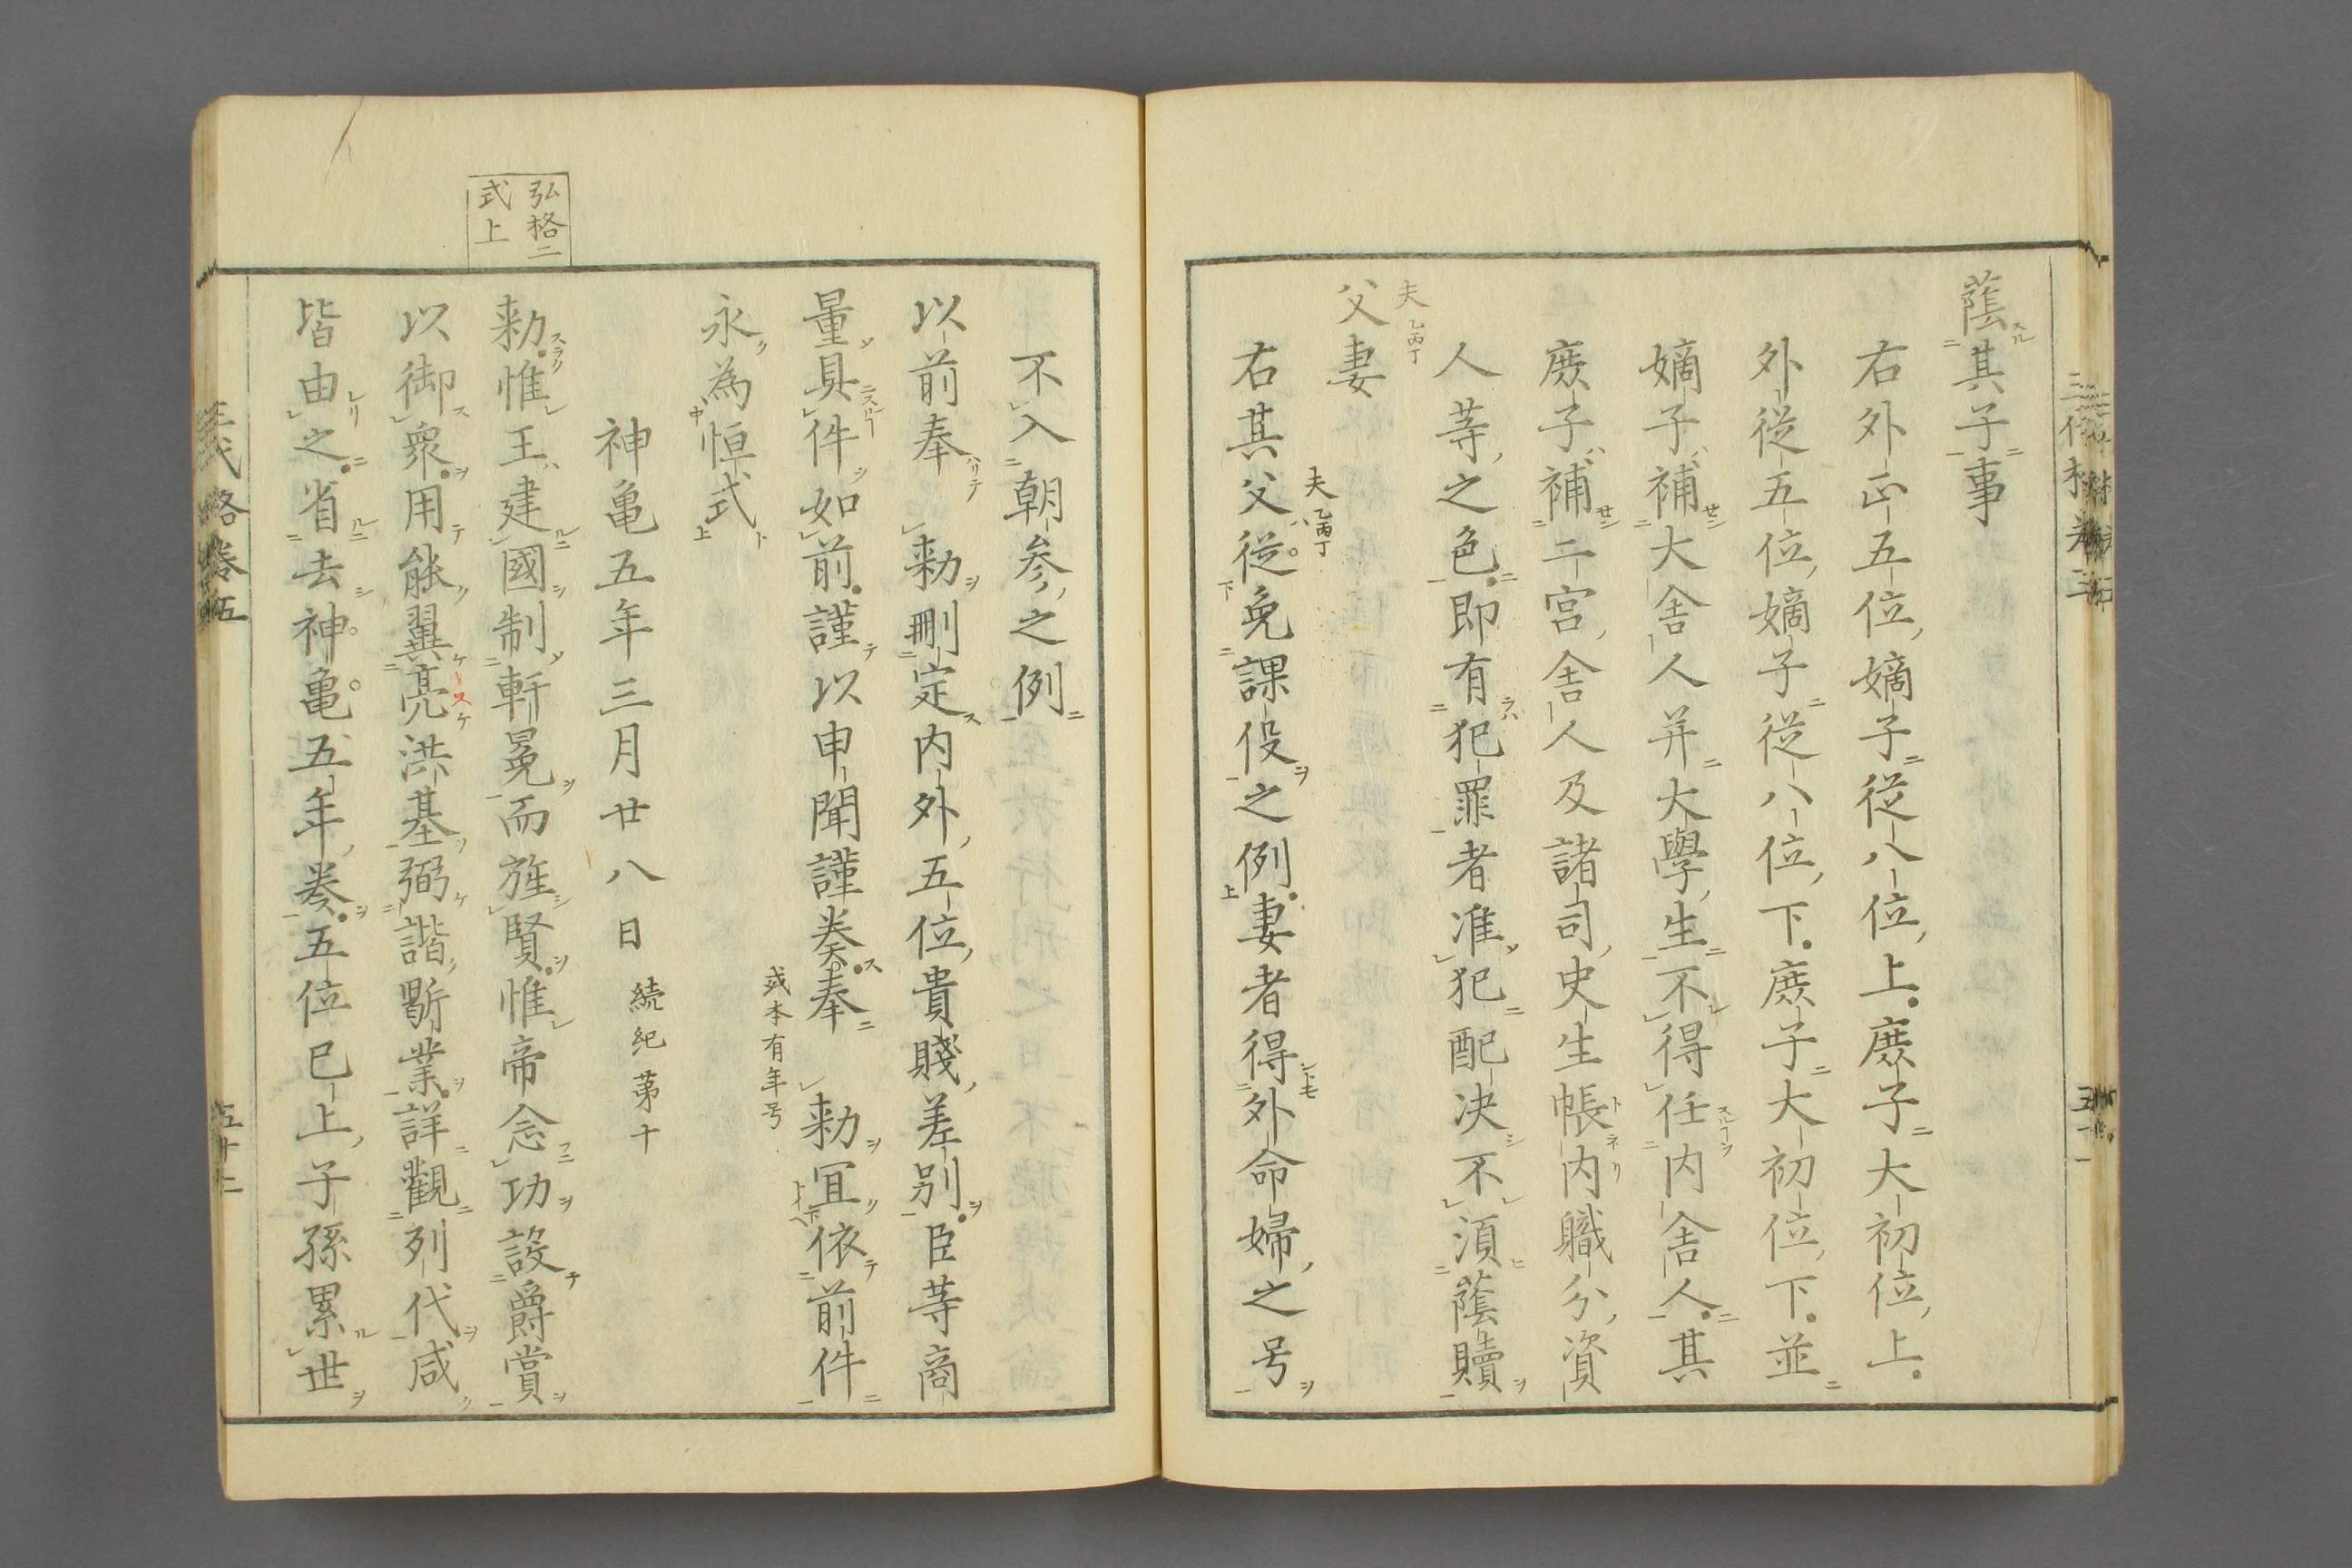 蔭其子事
右外正五位嫡子從八位上庶子大初位上
外從五位嫡子從八位下庶子大初位下並
嫡子補大舍人并大學生不得任内舍人其
庶子補二宮舍人及諸司史生帳内職分資
人等之色即有犯罪者准犯配决不湏蔭贖
夫乙丙丁
父妻
夫乙丙丁
右其父從免課役之例妻者得外命婦之号
不入朝参之例
以前奉　勅刪定内外五位貴賤差別臣等商
量具件如前謹以申聞謹奏奉　勅冝依前件
或本有年号
永為恒式
神亀五年三月廿八日　続紀第十
弘格二
式上
勅惟王建國制軒冕而旌賢惟帝念功設爵賞
以御衆用能翼亮洪基弼諧斷業詳觀列代咸
皆由之省去神亀五年奏五位已上子孫累世